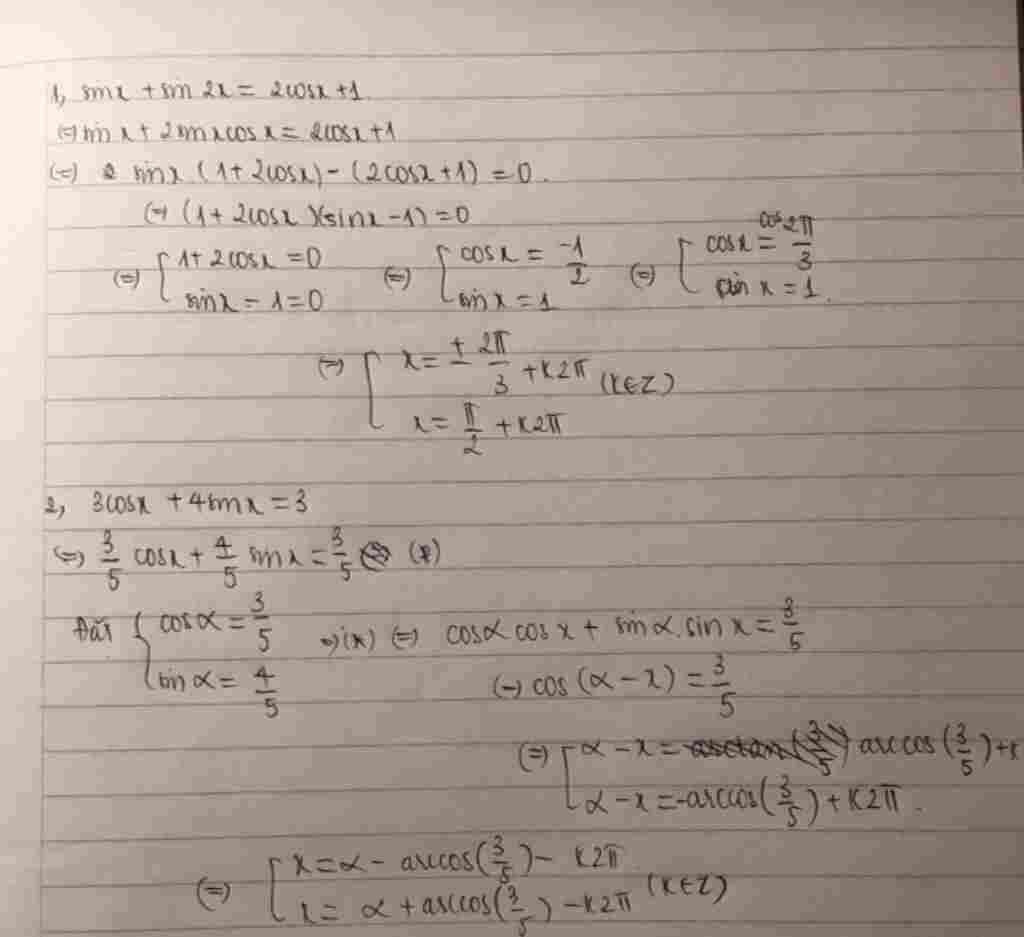 1, sinx + sin 2x = 2cosx + 1
(=) sin x + 2sinxcosx = 2cosx + 1
(=) sinx (1 + 2cosx) - (2cosx + 1) = 0.
(=) (1 + 2cosx)(sinx - 1) = 0
(=) [ 1 + 2cosx = 0 (=) [ cosx = -1/2 (=) [ cosx = cos 2π/3
sinx - 1 = 0 sin x = 1 sin x = 1.
(=) [ x = ± 2π/3 + k2π (k∈Z)
x = π/2 + k2π
2, 3cosx + 4sinx = 3
(=) 3/5 cosx + 4/5 sinx = 3/5 (*)
Đặt { cosα = 3/5 => (*) (=) cosα cos x + sinα.sin x = 3/5
sin α = 4/5 (=) cos (α - x) = 3/5
(=) [ α - x = arccos(3/5) + k
α - x = -arccos(3/5) + k2π.
(=) [ x = α - arccos(3/5) - k2π
x = α + arccos(3/5) - k2π (k∈Z)